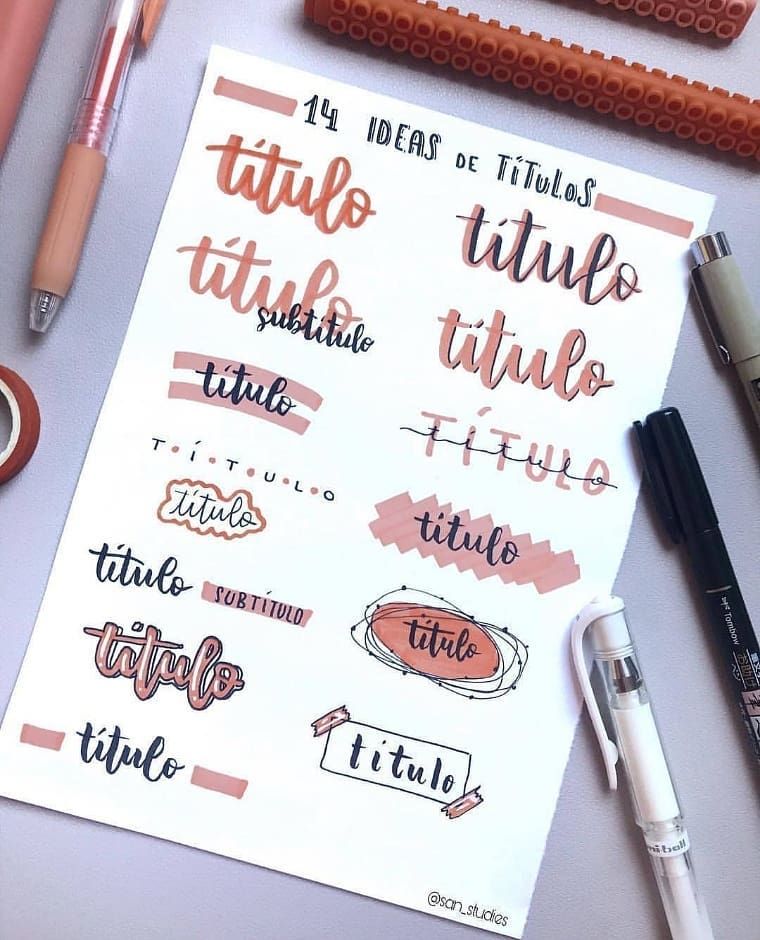 14 IDEAS DE TÍTULOS
título
título
título
subtítulo
título
título
TÍTULO
título
T·Í·T·U·L·O
título
título
título SUBTÍTULO
título
título
título
título
título
@san_studies
Tombow
uni-ball